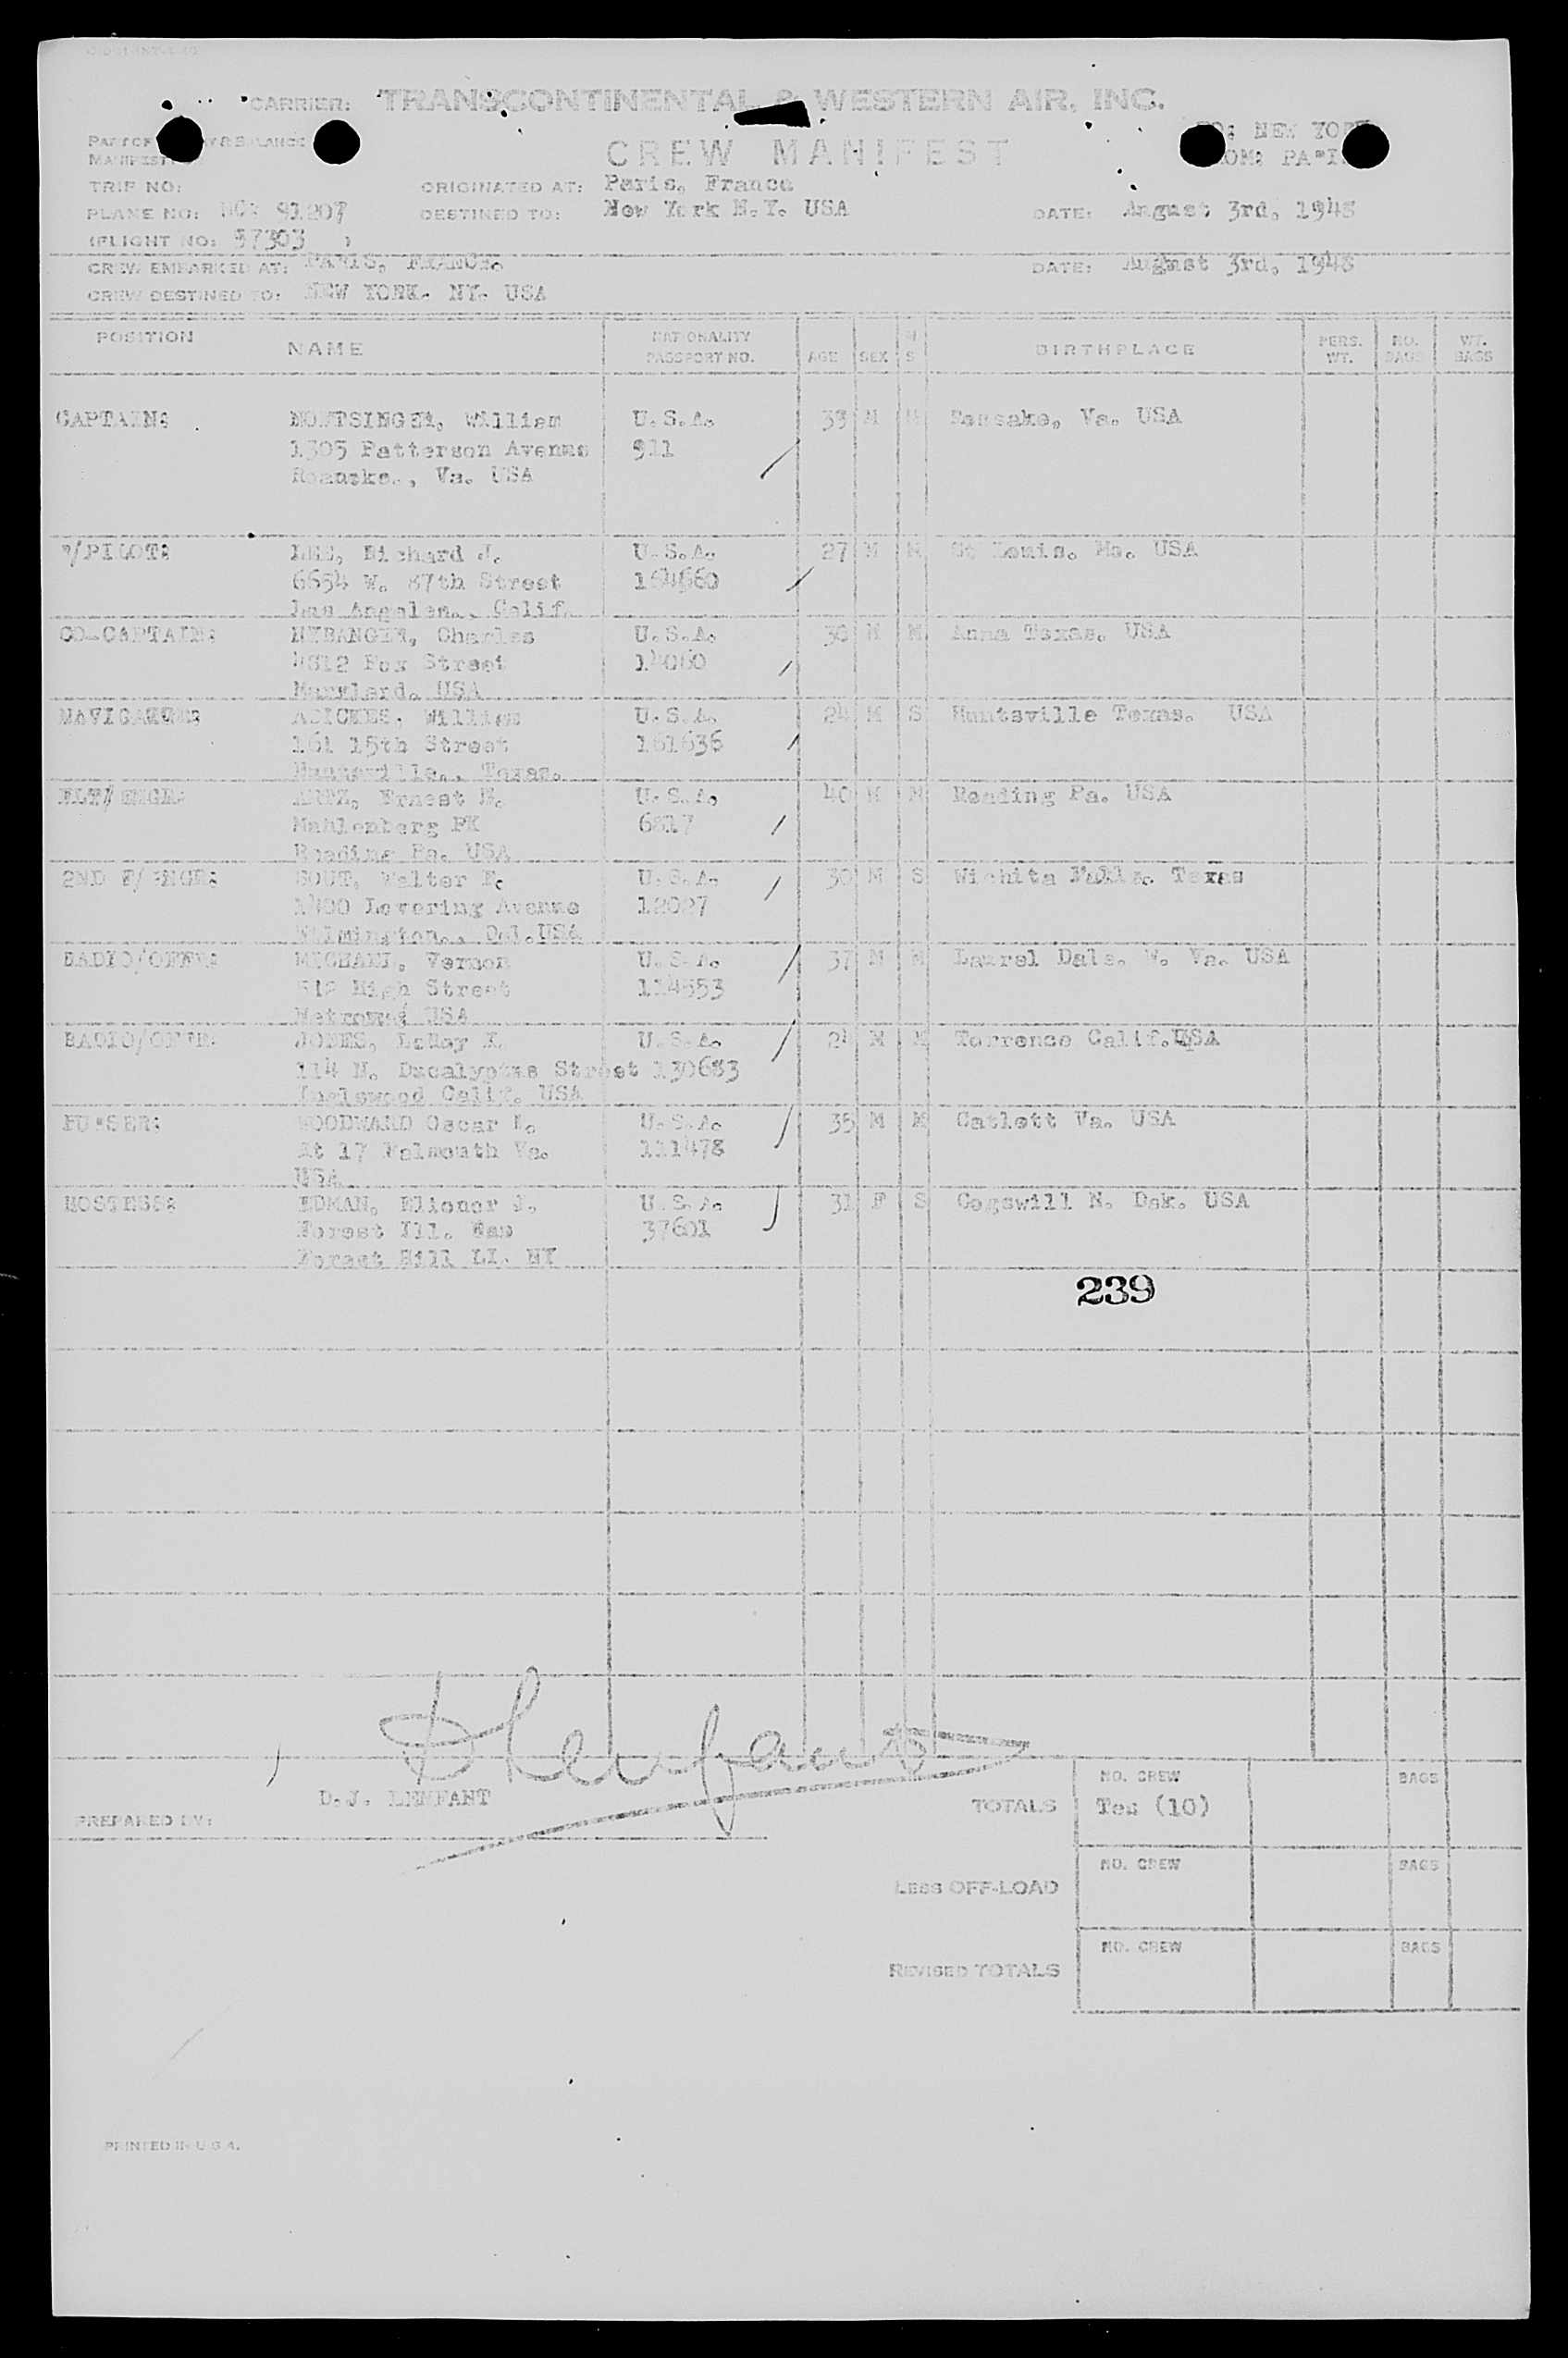 CARRIER: TRANSCONTINENTAL & WESTERN AIR, INC.
CREW MANIFEST
MANIFEST
TO: NEW YORK
FROM: PARIS
TRIP NO:
ORIGINATED AT: Paris, France
PLANE NO: NC: 91207
DESTINED TO: New York N.Y. USA
DATE: August 3rd, 1948
(FLIGHT NO: 97303 )
CREW EMBARKED AT: PARIS, FRANCE.
DATE: August 3rd, 1948
CREW DESTINED TO: NEW YORK. NY. USA
POSITION NAME NATIONALITY PASSPORT NO. AGE SEX M S BIRTHPLACE PERS. WT. NO. BAGS WT. BAGS
CAPTAIN: William U.S.A. 38 M Va. USA
1305 Patterson Avenue 911
Va. USA
P/PILOT: LEE, Richard J. U.S.A. 27 M M St Louis. Mo. USA
6654 W. 87th Street
Los Angeles., Calif.
CO-CAPTAIN: Charles U.S.A. M M Anna Texas. USA
Fox Street 14060
Maryland. USA
NAVIGATOR: William U.S.A. 24 M S Huntsville Texas. USA
161 15th Street 161636
Huntsville., Texas.
FLT/ENGR: Ernest U.S.A. 40 M M Reading Pa. USA
Muhlenberg PK 6817
Reading Pa. USA
2ND F/ENGR: Walter F. U.S.A. 30 M S Wichita Falls. Texas
1400 Levering Avenue 12027
Wilmington., Del.USA
RADIO/OFFR: MICHAEL, Vernon U.S.A. 37 M M Laurel Dale. W. Va. USA
High Street 114553
USA
RADIO/OFFR: JONES, LeRoy U.S.A. 24 M M Torrence Calif.USA
114 N. Eucalyptus Street 130683
Inglewood Calif. USA
PURSER: WOODWARD Oscar U.S.A. 35 M M Catlett Va. USA
Rt 17 Falmouth Va. 111478
USA
HOSTESS: EDMAN, Elionor J. U.S.A. 31 F S Cogswill N. Dak. USA
Forest 37601
Forest Hill LI. NY
239
D.J. LENFANT
PREPARED BY:
TOTALS NO. CREW Ten (10) BAGS
LESS OFF-LOAD NO. CREW BAGS
REVISED TOTALS NO. CREW BAGS
PRINTED IN U.S.A.